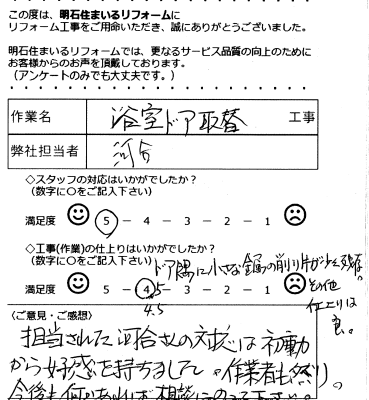 この度は、明石住まいるリフォームに
リフォーム工事をご用命いただき、誠にありがとうございました。
明石住まいるリフォームでは、更なるサービス品質の向上のために
お客様からのお声を頂戴しております。
(アンケートのみでも大丈夫です。)
作業名 浴室ドア取替 工事
弊社担当者 河合
◇スタッフの対応はいかがでしたか?
(数字に○をご記入下さい)
満足度 5 - 4 - 3 - 2 - 1
◇工事(作業)の仕上りはいかがでしたか?
(数字に○をご記入下さい)
ドア隅に小さな鋸の削り片が少く残存。
満足度 5 - 4 - 3 - 2 - 1
4.5
その他
仕上りは
良。
〈ご意見・ご感想〉
担当された河合さんの対応は初動
から好感を持ちました。作業者も然り。
今後も何かあれば相談にのって下さい。